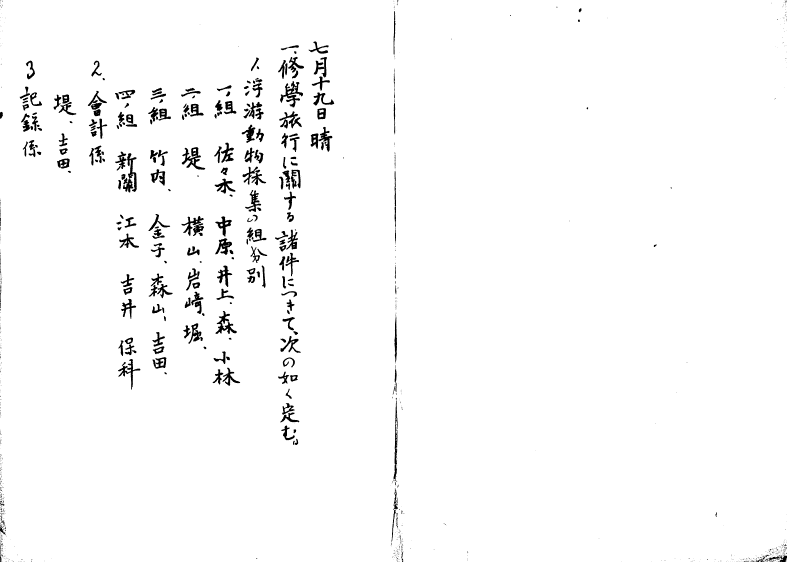 七月十九日 晴
一、修學旅行に關する諸件につきて、次の如く定む。
1、浮游動物採集の組分別
一、組 佐々木、中原、井上、森、小林
二、組 堤、横山、岩崎、堀、
三、組 竹内、金子、森山、吉田、
四、組 新關 江本 吉井 保科
2、會計係
堤、吉田、
3 記録係